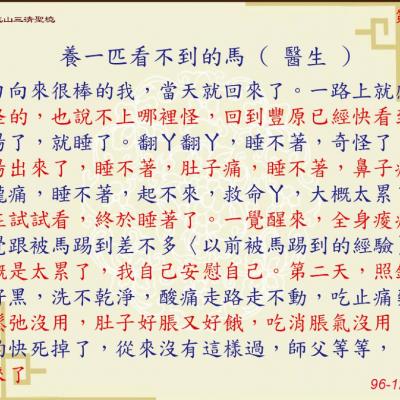 山三清聖境
第
養一匹看不到的馬（ 醫生 ）
向來很棒的我，當天就回來了。一路上就
怪的，也說不上哪裡怪，回到豐原已經快看
了，就睡了。翻ㄚ翻ㄚ，睡不著，奇怪了
易出來了，睡不著，肚子痛，睡不著，鼻子
痛，睡不著，起不來，救命ㄚ，大概太累
試試看，終於睡著了。一覺醒來，全身痠
覺跟被馬踢到差不多〈以前被馬踢到的經驗
概是太累了，我自己安慰自己。第二天，照
好黑，洗不乾淨，酸痛走路走不動，吃止痛
鬆弛沒用，肚子好脹又好餓，吃消脹氣沒用
的快死掉了，從來沒有這樣過，師父等等，
來了
96-1